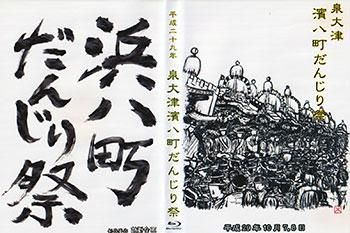 浜八町
だんじり祭
平成二十九年
泉大津濱八町だんじり祭
Blu-ray
泉大津
濱八町だんじり祭
平成29年10月7,8日